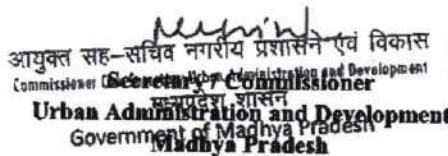 आयुक्त सह-सचिव नगरीय प्रशासन एवं विकास
Commissioner Urban Administration and Development
Secretary / Commissioner
मध्यप्रदेश शासन
Urban Administration and Development
Government of Madhya Pradesh
Madhya Pradesh